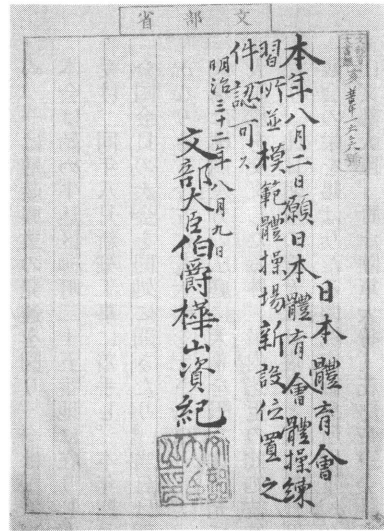 文部省
日本體育會
本年八月二日願日本體育會體操練
習所並模範體操場新設位置之
件認可ス
明治三十二年八月九日
文部大臣伯爵樺山資紀